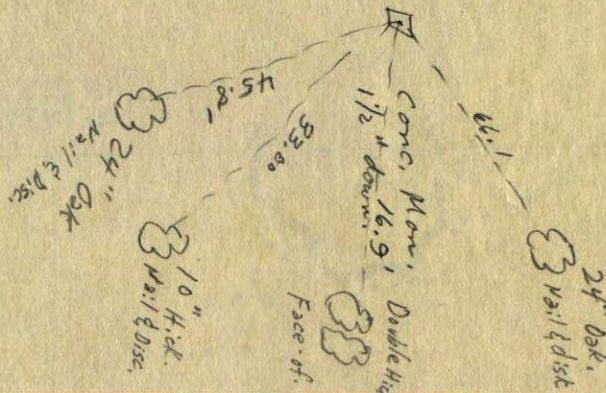 45.8'
24" Oak
Nail & Disc.
33.00
10" Hick.
Nail & Disc.
Conc. Mon.
1 1/2" down.
16.9'
Double Hic
Face of.
66.1
24" Oak.
Nail & disk